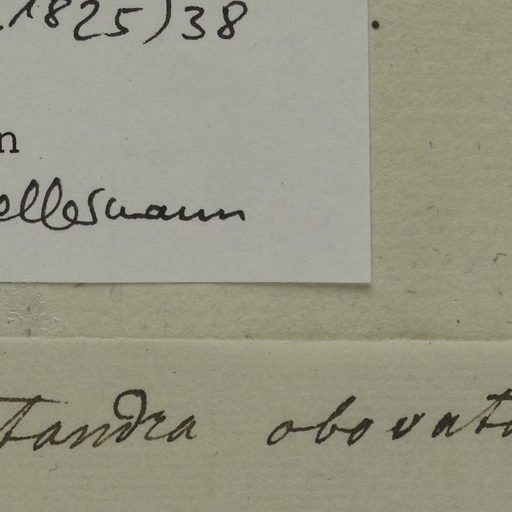 1825)38
n
ellermann
tandra obovata